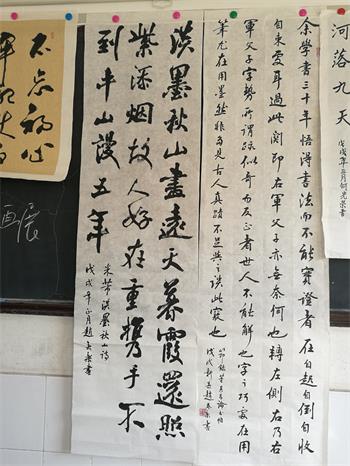 河落九天
余學書三十年悟得書法而不能實證者在自起自倒自收
自束爱耳過此關即右軍父子亦無奈何也轉左側右乃右
軍父子字勢所謂跡似奇而反正者世人不能解也字之巧處在用
筆尤在用墨然非多見古人真跡不足與之談此竅也
淡墨秋山畫遠天暮霞還照
紫添烟故人好在重携手不
到平山謾五年
米芾淡墨秋山詩
戊戌年正月趙
不忘初心
画展